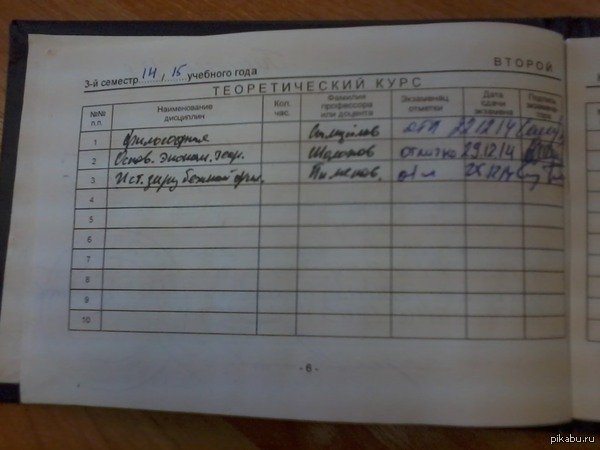 3-й семестр 14, 15 учебного года
ВТОРОЙ
ТЕОРЕТИЧЕСКИЙ КУРС
№№ п.п. Наименование дисциплин Кол. час. Фамилия профессора или доцента Экзаменац. отметки Дата сдачи экзамена Подпись экзамена тора
1 Философия 22.12.14
2 Основ. эконом. теор. отлично 29.12.14
3 Ист. отл
4
5
6
7
8
9
10
- 6 -
pikabu.ru